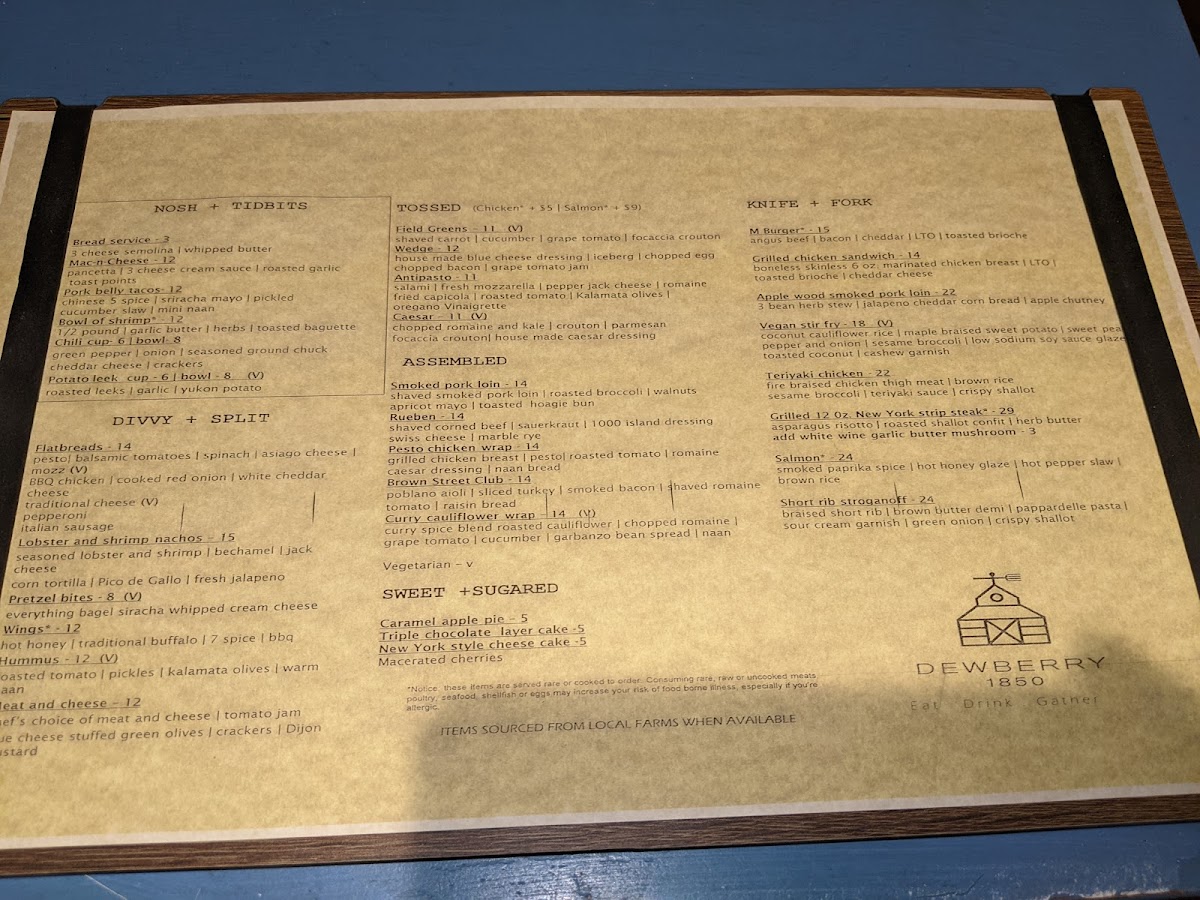 NOSH + TIDBITS
Bread service - 3
3 cheese semolina | whipped butter
Mac-n-Cheese - 12
pancetta | 3 cheese cream sauce | roasted garlic
toast points
Pork belly tacos- 12
chinese 5 spice | sriracha mayo | pickled
cucumber slaw | mini naan
Bowl of shrimp* - 12
1/2 pound | garlic butter | herbs | toasted baguette
Chili cup- 6 | bowl- 8
green pepper | onion | seasoned ground chuck
cheddar cheese | crackers
Potato leek cup - 6 | bowl - 8 (V)
roasted leeks | garlic | yukon potato
DIVVY + SPLIT
Flatbreads - 14
pesto| balsamic tomatoes | spinach | asiago cheese |
mozz (V)
BBQ chicken | cooked red onion | white cheddar
cheese
traditional cheese (V)
pepperoni
italian sausage
Lobster and shrimp nachos - 15
seasoned lobster and shrimp | bechamel | jack
cheese
corn tortilla | Pico de Gallo | fresh jalapeno
Pretzel bites - 8 (V)
everything bagel siracha whipped cream cheese
Wings* - 12
hot honey | traditional buffalo | 7 spice | bbq
Hummus - 12 (V)
roasted tomato | pickles | kalamata olives | warm
naan
Meat and cheese - 12
hef's choice of meat and cheese | tomato jam
ue cheese stuffed green olives | crackers | Dijon
ustard
TOSSED (Chicken* + $5 | Salmon* + $9)
Field Greens - 11 (V)
shaved carrot | cucumber | grape tomato | focaccia crouton
Wedge - 12
house made blue cheese dressing | iceberg | chopped egg
chopped bacon | grape tomato jam
Antipasto - 11
salami | fresh mozzarella | pepper jack cheese | romaine
fried capicola | roasted tomato | Kalamata olives |
oregano Vinaigrette
Caesar - 11 (V)
chopped romaine and kale | crouton | parmesan
focaccia crouton| house made caesar dressing
ASSEMBLED
Smoked pork loin - 14
shaved smoked pork loin | roasted broccoli | walnuts
apricot mayo | toasted hoagie bun
Rueben - 14
shaved corned beef | sauerkraut | 1000 island dressing
swiss cheese | marble rye
Pesto chicken wrap - 14
grilled chicken breast | pesto| roasted tomato | romaine
caesar dressing | naan bread
Brown Street Club - 14
poblano aioli | sliced turkey | smoked bacon | shaved romaine
tomato | raisin bread
Curry cauliflower wrap - 14 (V)
curry spice blend roasted cauliflower | chopped romaine |
grape tomato | cucumber | garbanzo bean spread | naan
Vegetarian - v
SWEET +SUGARED
Caramel apple pie - 5
Triple chocolate layer cake -5
New York style cheese cake -5
Macerated cherries
*Notice: these items are served rare or cooked to order. Consuming rare, raw or uncooked meats
poultry, seafood, shellfish or eggs may increase your risk of food borne illness, especially if you're
allergic.
ITEMS SOURCED FROM LOCAL FARMS WHEN AVAILABLE
KNIFE + FORK
M Burger* - 15
angus beef | bacon | cheddar | LTO | toasted brioche
Grilled chicken sandwich - 14
boneless skinless 6 oz. marinated chicken breast | LTO |
toasted brioche | cheddar cheese
Apple wood smoked pork loin - 22
3 bean herb stew | jalapeno cheddar corn bread | apple chutney
Vegan stir fry - 18 (V)
coconut cauliflower rice | maple braised sweet potato | sweet pea
pepper and onion | sesame broccoli | low sodium soy sauce glaze
toasted coconut | cashew garnish
Teriyaki chicken - 22
fire braised chicken thigh meat | brown rice
sesame broccoli | teriyaki sauce | crispy shallot
Grilled 12 Oz. New York strip steak* - 29
asparagus risotto | roasted shallot confit | herb butter
add white wine garlic butter mushroom - 3
Salmon* - 24
smoked paprika spice | hot honey glaze | hot pepper slaw |
brown rice
Short rib stroganoff - 24
braised short rib | brown butter demi | pappardelle pasta |
sour cream garnish | green onion | crispy shallot
DEWBERRY
1850
Eat Drink Gather